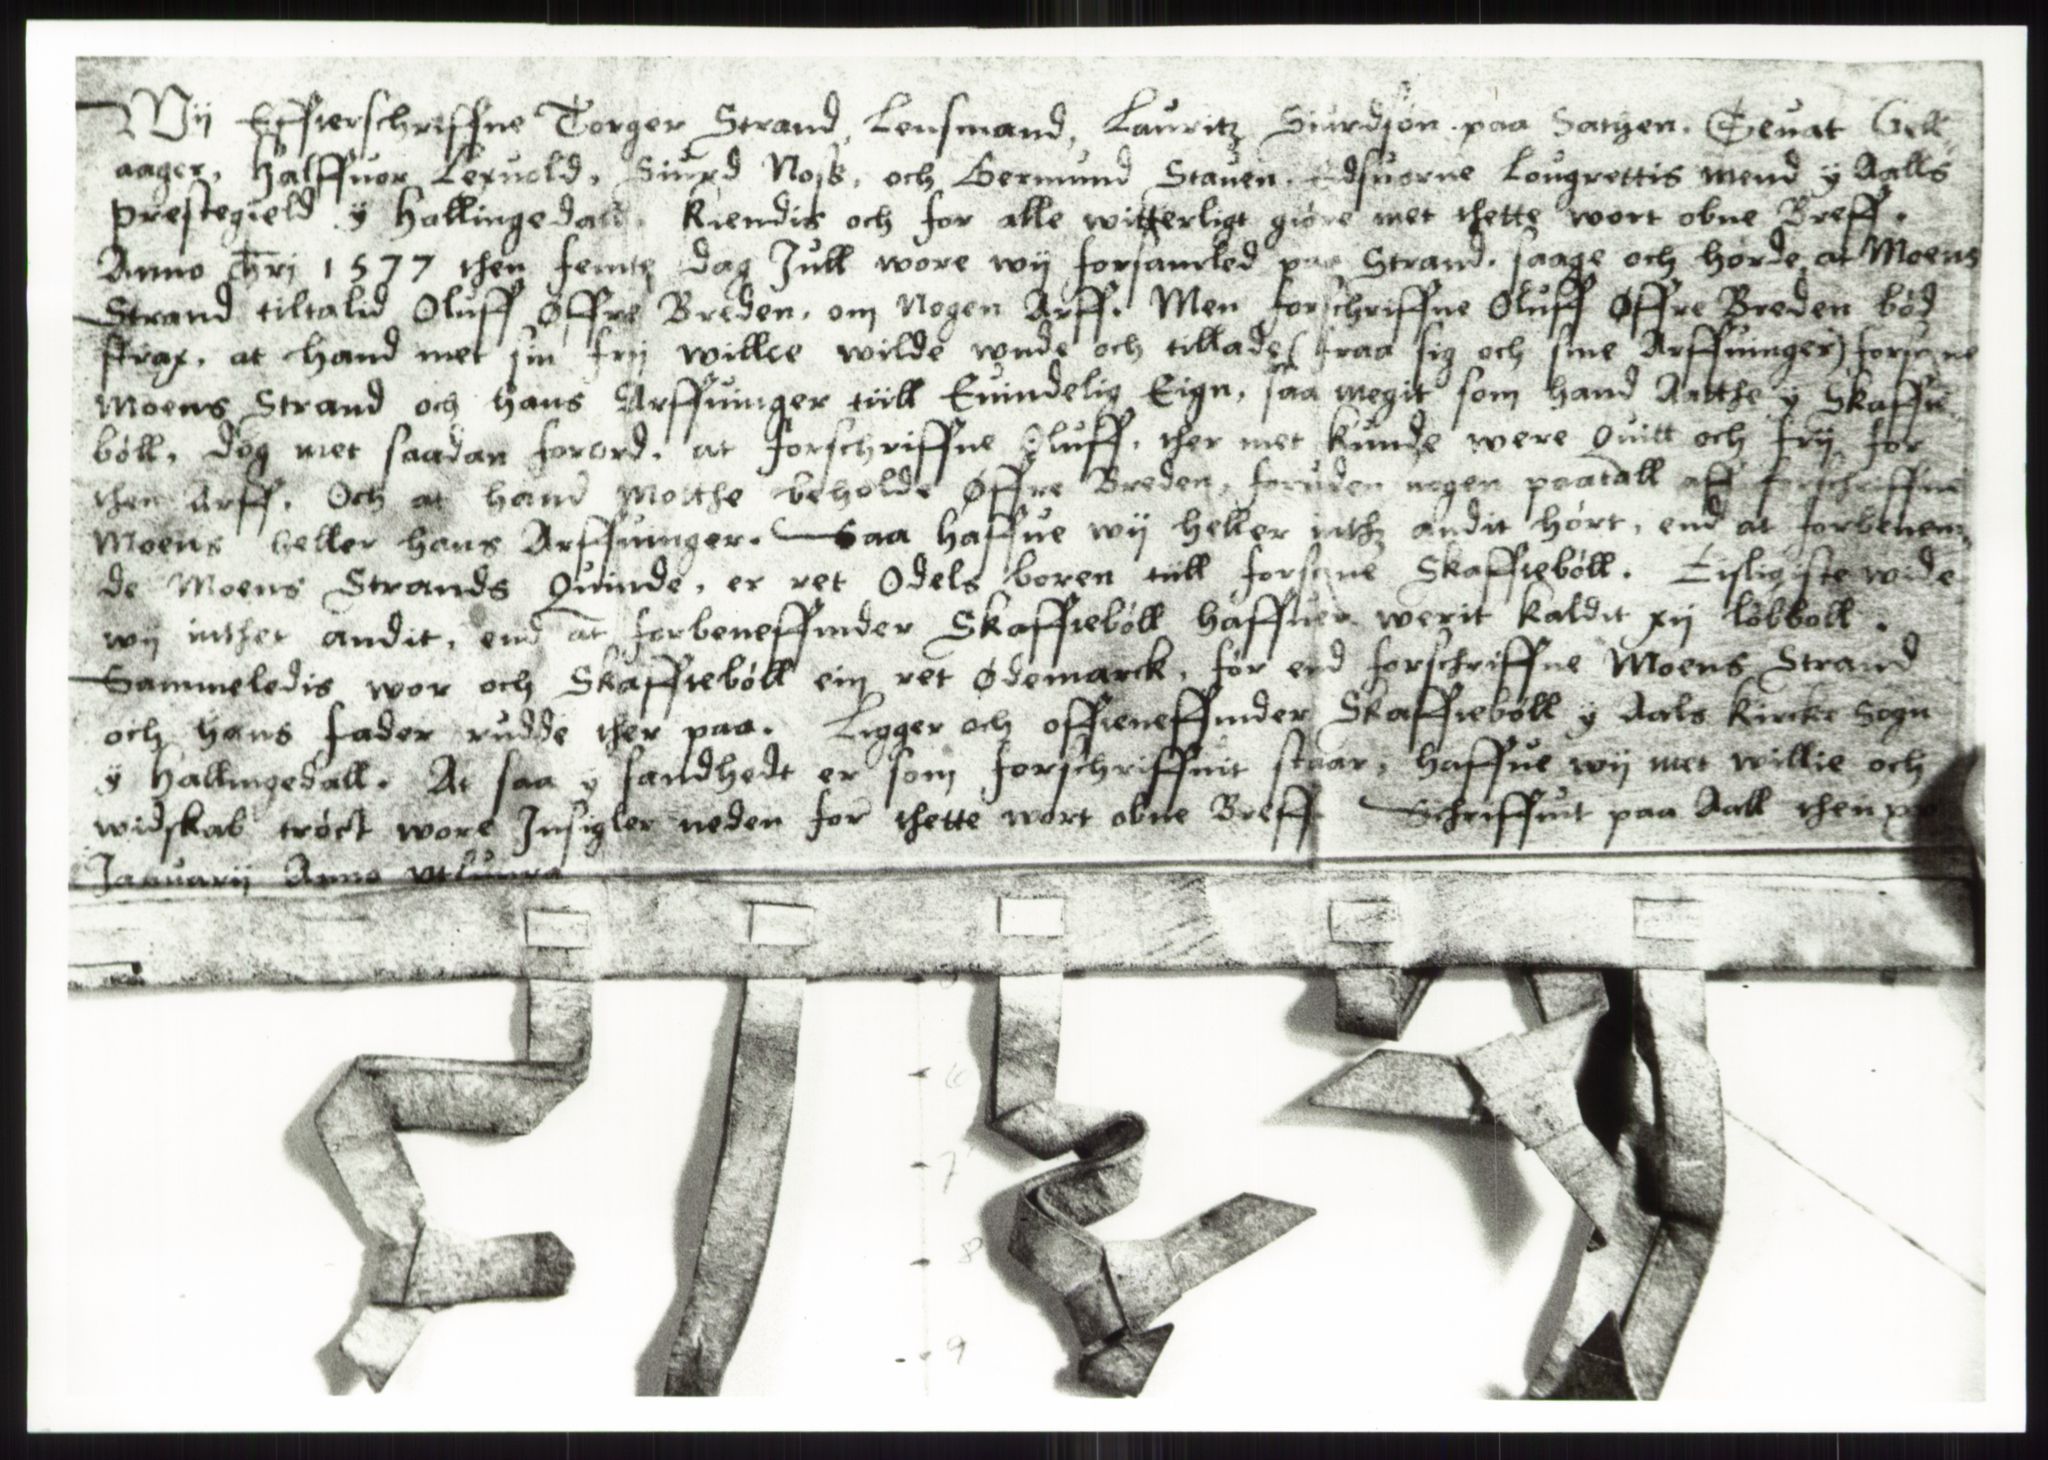 Wij Effterschriffne Torger Strand, Lensmand, Lauritz Siurdsøn paa Satzen, Teuat Gell
aager, Halffuor Lexuold, Siurd Noss, och Germund Stauen, Edsuorne Lougrettis mend y Aalls
prestegield y Hallingedall, Kiendis och for alle witterligt giøre met thette wort obne Breff.
Anno Chri 1577 then femte dag Jull wore wij forsamled paa Strand, saage och hørde, at Moens
Strand tiltalid Oluff Øffre Breden, om Nogen Arff. Men forschriffne Oluff Øffre Breden bød
strax, at hand met sin frij willie wilde wnde och tillade (fraa sig och sine Arffuinger) forscne
Moens Strand och hans Arffuinger tiill Euindelig Eign, saa megit som hand Aatthe y Skaffte
bøll, dog met saadan forord, at forschriffne Oluff, ther met kunde were Quitt och frij for
then Arff. Och at hand Motthe beholde Øffre Breden, foruden nogen paatall aff forschriffne
Moens heller hans Arffuinger. Saa haffue wij heller inthz andit hørt, end at forbenem
de Moens Strands Quinde, er ret Odels boren tiill forscne Skafftebøll. Eisligiste wide
wij inthet andit, end at forbeneffinder Skafftebøll haffuer werit kaldit xij løbboll.
Sammeledis wor och Skafftebøll ein ret Ødemarck, før end forschriffne Moens Strand
och hans fader rudde ther paa. Ligger och offteneffinder Skafftebøll y Aals Kircke Sogn
y Hallingedall. At saa y sandhedt er som forschriffuit staar, haffue wij met willie och
widskab trøct wore Insigler neden for thette wort obne Breff. Schriffuit paa Aall then
Januarij Anno vt supra
6
7
8
9